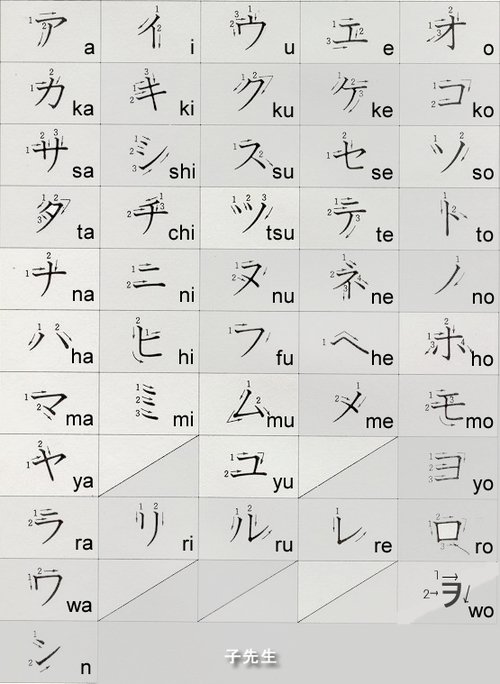 ア a イ i ウ u エ e オ o
カ ka キ ki ク ku ケ ke コ ko
サ sa シ shi ス su セ se ソ so
タ ta チ chi ツ tsu テ te ト to
ナ na ニ ni ヌ nu ネ ne ノ no
ハ ha ヒ hi フ fu ヘ he ホ ho
マ ma ミ mi ム mu メ me モ mo
ヤ ya ユ yu ヨ yo
ラ ra リ ri ル ru レ re ロ ro
ワ wa ヲ wo
ン n
子先生